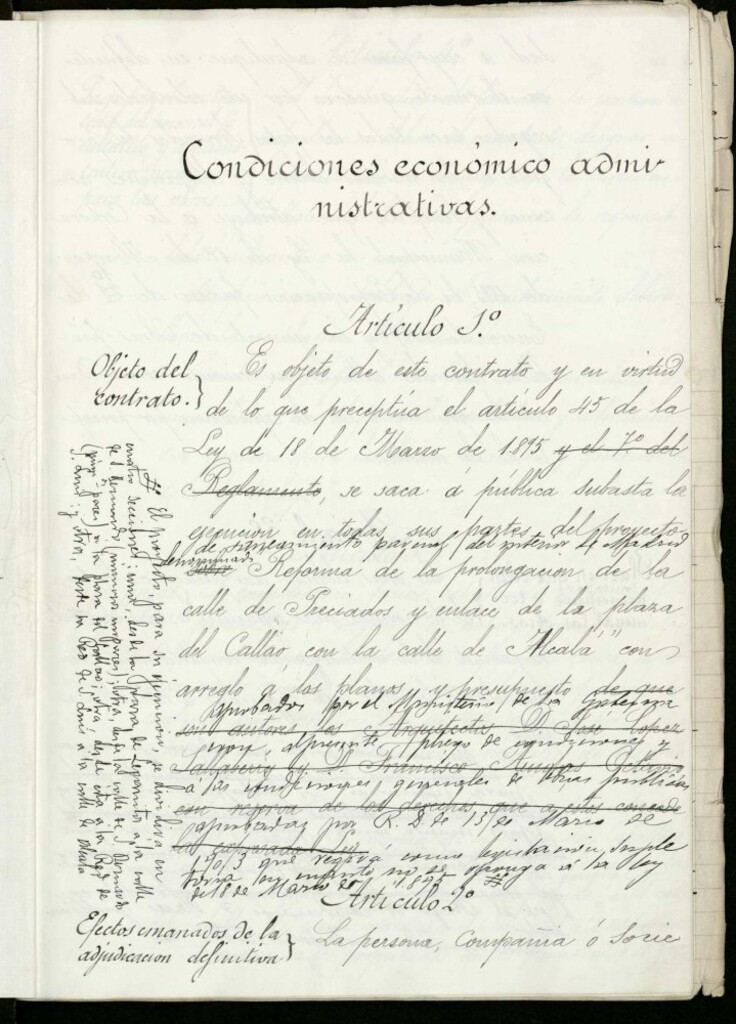 Condiciones económico admi-
nistrativas.
Artículo 1.º
Objeto del
contrato.
Es objeto de este contrato y en virtud
de lo que preceptúa el artículo 45 de la
Ley de 18 de Marzo de 1895 y el 7.º del
Reglamento, se saca á pública subasta la
ejecución en todas sus partes del proyecto
de saneamiento parcial del interior de Madrid
denominado
Reforma de la prolongacion de la
calle de Preciados y enlace de la plaza
del Callao con la calle de Alcalá" con
arreglo á los planos y presupuesto de que
aprobados por el Ministerio de la Gobernación
son autores los Arquitectos D. José López
y con el presente pliego de condiciones y
Sallaberry y D. Francisco Andrés Octavio
á las condiciones generales de obras públicas
con reserva de los derechos que a estos concede
aprobadas por R. D. de 13 de Marzo de
la expresada Ley
1903 que regirá como legislación suple
toria en cuanto no se oponga á la ley
de 18 de Marzo de 1895 #
# El proyecto, para su ejecución, se dividirá en
cuatro secciones: una, desde la plaza de Leganitos a la calle
de S. Bernardo (números impares); otra, desde la calle de S. Bernardo
á la plaza del Callao; otra, desde esta á la Red de
S. Luis; y otra, desde la Red de S. Luis á la calle de Alcalá
Artículo 2.º
Efectos emanados de la
adjudicacion definitiva
La persona, Compañia ó Socie